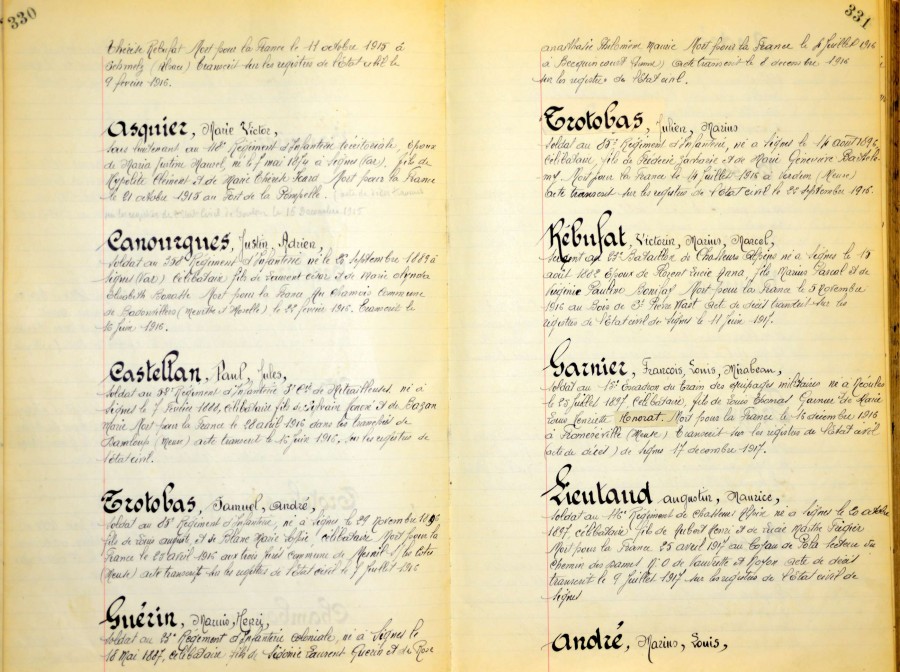 330
Thérèse Rebufat Mort pour la France le 11 octobre 1915 à
(Alsace) transcrit sur les registres de l'état civil le
9 février 1916.
Asquier, Marie Victor,
Sous lieutenant au 118e Régiment d'Infanterie territoriale, époux
de Maria Justine Maurel, né le 7 mai 1874 à Signes (Var), fils de
Hypolite Clément et de Marie Thérèse Mort pour la France
le 21 octobre 1915 au Fort de la Pompelle.
Canourgues, Justin, Adrien,
Soldat au Régiment d'Infanterie né le Septembre 1883 à
Signes (Var) célibataire fils de César et de Marie
Elisabeth Mort pour la France Au Chamois commune
de Badonvillers (Meurthe et Moselle) le février 1916. transcrit le
16 juin 1916.
Castellan, Paul, Jules,
Soldat au Régiment d'Infanterie Cie de Mitrailleuses, né à
Signes le 7 Février 1888, célibataire fils de Sylvain honoré et de Bazan
Marie Mort pour la France le 20 avril 1916 dans les tranchées de
Damloup (Meuse) acte transcrit le 16 juin 1916, sur les registres de
l'état civil.
Trotobas, Samuel, André,
Soldat au Régiment d'Infanterie, né à Signes le 29 Novembre
fils de Louis auguste, et de Blanc Marie Sophie, célibataire Mort pour la
France le avril 1916 commune de
(Meuse) acte transcrit sur les registres de l'état civil le Juillet 1916
Guérin, Marius, Henri,
Soldat au Régiment d'Infanterie coloniale, né à Signes le
18 Mai 1887, célibataire fils de Sidonie Laurent Guerin et de Rose
331
anasthasie Philomène Maunie Mort pour la France le Juillet 1916
à Becquincourt (Somme) acte transcrit le 2 décembre 1916
sur les registres de l'état civil.
Trotobas, Julien, Marius
Soldat au Régiment d'Infanterie, né à Signes le 14 août
célibataire, fils de Frédéric Zacharie et de Marie Geneviève Barthéle-
my Mort pour la France le 14 juillet 1916 à Verdun (Meuse)
acte transcrit sur les registres de l'état civil le Septembre 1916.
Rébufat, Victorin, Marius, Marcel,
Sergent au Bataillon de Chasseurs Alpins né à Signes le 18
août 1882 Epoux de Parent Lucie Anna, fils Marius Pascal et de
Virginie Pauline Bonifay Mort pour la France le 5 Novembre
1916 au Bois de St Pierre Wast acte de décès transcrit sur les
registres de l'état civil de Signes le 11 juin 1917.
Garnier, François, Louis, Mirabeau,
Soldat au 15e Escadron du train des équipages militaires né à
le 25 juillet 1897 célibataire, fils de Louis Thomas Garnier et de Marie
Louise Henriette Honorat. Mort pour la France le 16 décembre 1916
à Froméréville (Meuse) transcrit sur les registres de l'état civil
(acte de décès) de Signes 17 décembre 1917.
Lieutaud augustin, Maurice,
Soldat au Régiment de chasseurs Alpin né à Signes le octobre
1897, célibataire, fils de Hubert Henri et de Lucie Marthe
Mort pour la France 25 avril 1917 au secteur du
Chemin des Dames N.O de Vandrette et Noyon acte de décès
transcrit le 9 Juillet 1917 sur les registres de l'état civil de
Signes
André, Marius, Louis,